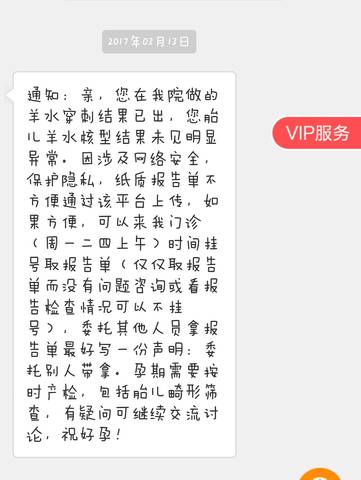 2017年03月13日
通知：亲，您在我院做的
羊水穿刺结果已出，您胎
儿羊水核型结果未见明显
异常。因涉及网络安全，
保护隐私，纸质报告单不
方便通过该平台上传，如
果方便，可以来我门诊
（周一二四上午）时间挂
号取报告单（仅仅取报告
单而没有问题咨询或看报
告检查情况可以不挂
号），委托其他人员拿报
告单最好写一份声明：委
托别人带拿。孕期需要按
时产检，包括胎儿畸形筛
查，有疑问可继续交流讨
论，祝好孕！
VIP服务